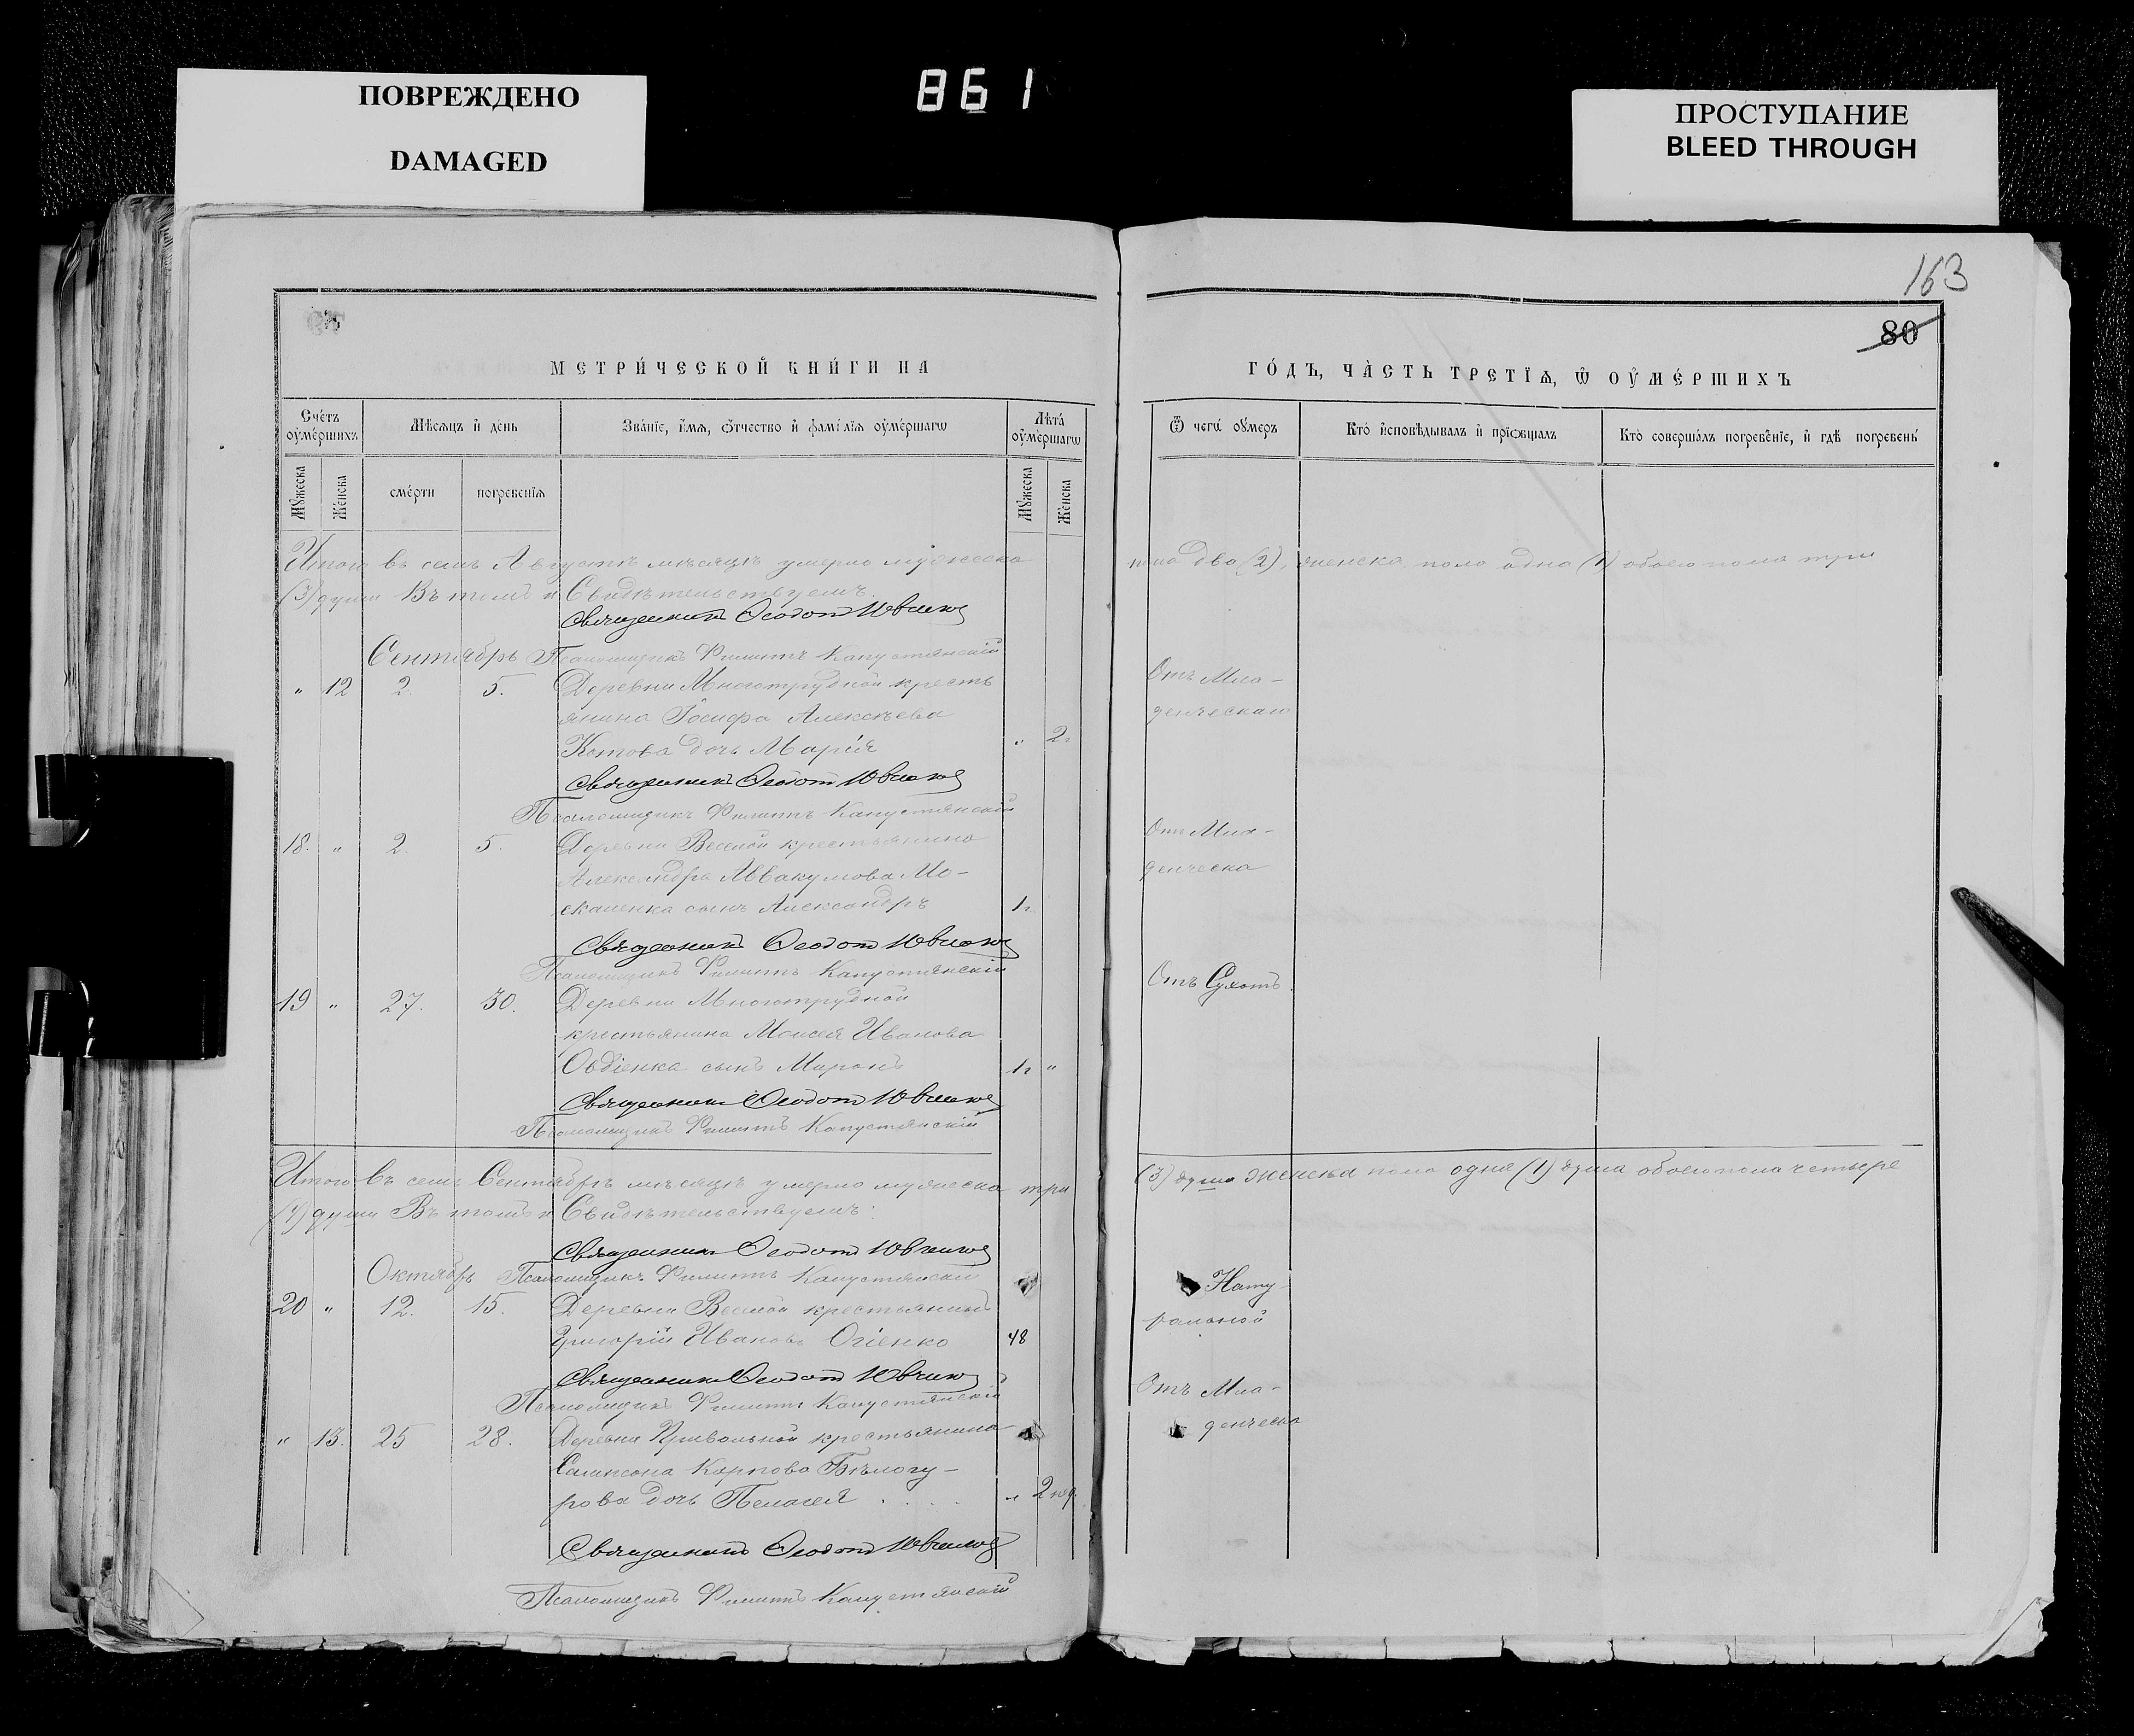 ПОВРЕЖДЕНО
DAMAGED
861
ПРОСТУПАНИЕ
BLEED THROUGH
163
80
МЕТРИ́ЧЕСКОЙ КНИ́ГИ НА
ГО́ДЪ, ЧА̀СТЬ ТРЕТІѦ, Ѿ ОУ҆МЕ́РШИХЪ
Сче́тъ оу҆ме́ршихъ
Мѣ́сѧцъ и҆ де́нь
Зва́нїе, и҆́мѧ, ѻ҆́тчество и҆ фамі́лїѧ оу҆ме́ршагѡ
Лѣта́ оу҆ме́ршагѡ
Ѿ чегѡ̀ оу҆́меръ
Кто̀ и҆сповѣ́дывалъ и҆ прїѻбща́лъ
Кто̀ соверша́лъ погребе́нїе, и҆ гдѣ̀ погребены̀
Мꙋ́жеска
Же́нска
сме́рти
погребе́нїѧ
Мꙋ́жеска
Же́нска
Итого въ семъ Августѣ мѣсяцѣ умерло мужеска
пола два (2), женска пола одна (1) обоего пола три
(3) души Въ томъ и Свидѣтельствуемъ
Священникъ Ѳеодотъ
Сентябрь Псаломщикъ Филиппъ Капустянскій
" 12 2. 5. Деревни Многотрудной кресть
янина Іосифа Алексѣева
Котова дочь Марія " 2г
Отъ Мла-
денческаго
Священникъ Ѳеодотъ
Псаломщикъ Филиппъ Капустянскій
18. " 2. 5. Деревни Веселой крестьянина
Александра Аввакумова Мо-
скаленка сынъ Александръ 1г
Отъ Мла-
денческа
Священникъ Ѳеодотъ
Псаломщикъ Филиппъ Капустянскій
19 " 27. 30. Деревни Многотрудной
крестьянина Моисея Иванова
Овдіенка сынъ Миронъ 1г "
Отъ Сухотъ.
Священникъ Ѳеодотъ
Псаломщикъ Филиппъ Капустянскій
Итого въ семъ Сентябрѣ мѣсяцѣ умерло мужеска три
(3) душъ женска пола одна (1) душа обоего пола четыре
(4) души Въ томъ и Свидѣтельствуемъ:
Священникъ Ѳеодотъ
Октябрь Псаломщикъ Филиппъ Капустянскій
20 " 12. 15. Деревни Веселой крестьянинъ
Григорій Ивановъ Огіенко 48
Нату-
ральной
Священникъ Ѳеодотъ
Псаломщикъ Филиппъ Капустянскій
" 13. 25 28. Деревни Привольной крестьянина
Сампсона Карпова Бѣлогу-
рова дочь Пелагея . . . . " 2 нед.
Отъ Мла-
денческа
Священникъ Ѳеодотъ
Псаломщикъ Филиппъ Капустянскій